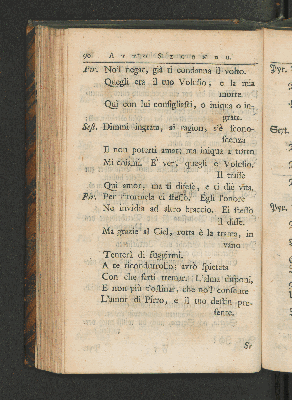 90 ATTO SECONDO.
Pir. No'l negar, già ti condanna il volto.
Quegli era il tuo Volusio, e la mia
morte
Qui con lui consigliasti, o iniqua o in-
grata.
Sest. Dimmi ingrata, ai ragion, s'è scono-
scenza
Il non poterti amar; ma iniqua a torto
Mi chiami. È ver, quegli è Volusio.
Il trasse
Qui amor, ma ti difese, e ti diè vita.
Pir. Per ritormela ei stesso. Egli l'onore
Ne invidia ad altro braccio. Ei stesso
il disse.
Ma grazie al Ciel, rotta è la trama, in
vano
Tenterà di fuggirmi.
A te ricondurrollo; avrò spietata
Con che farti tremar. L'alma disponi,
E non più t'ostinar, che no'l consente
L'amor di Pirro, e il tuo destin pre-
sente.
Se
Pyr.
Sest.
Pyr.